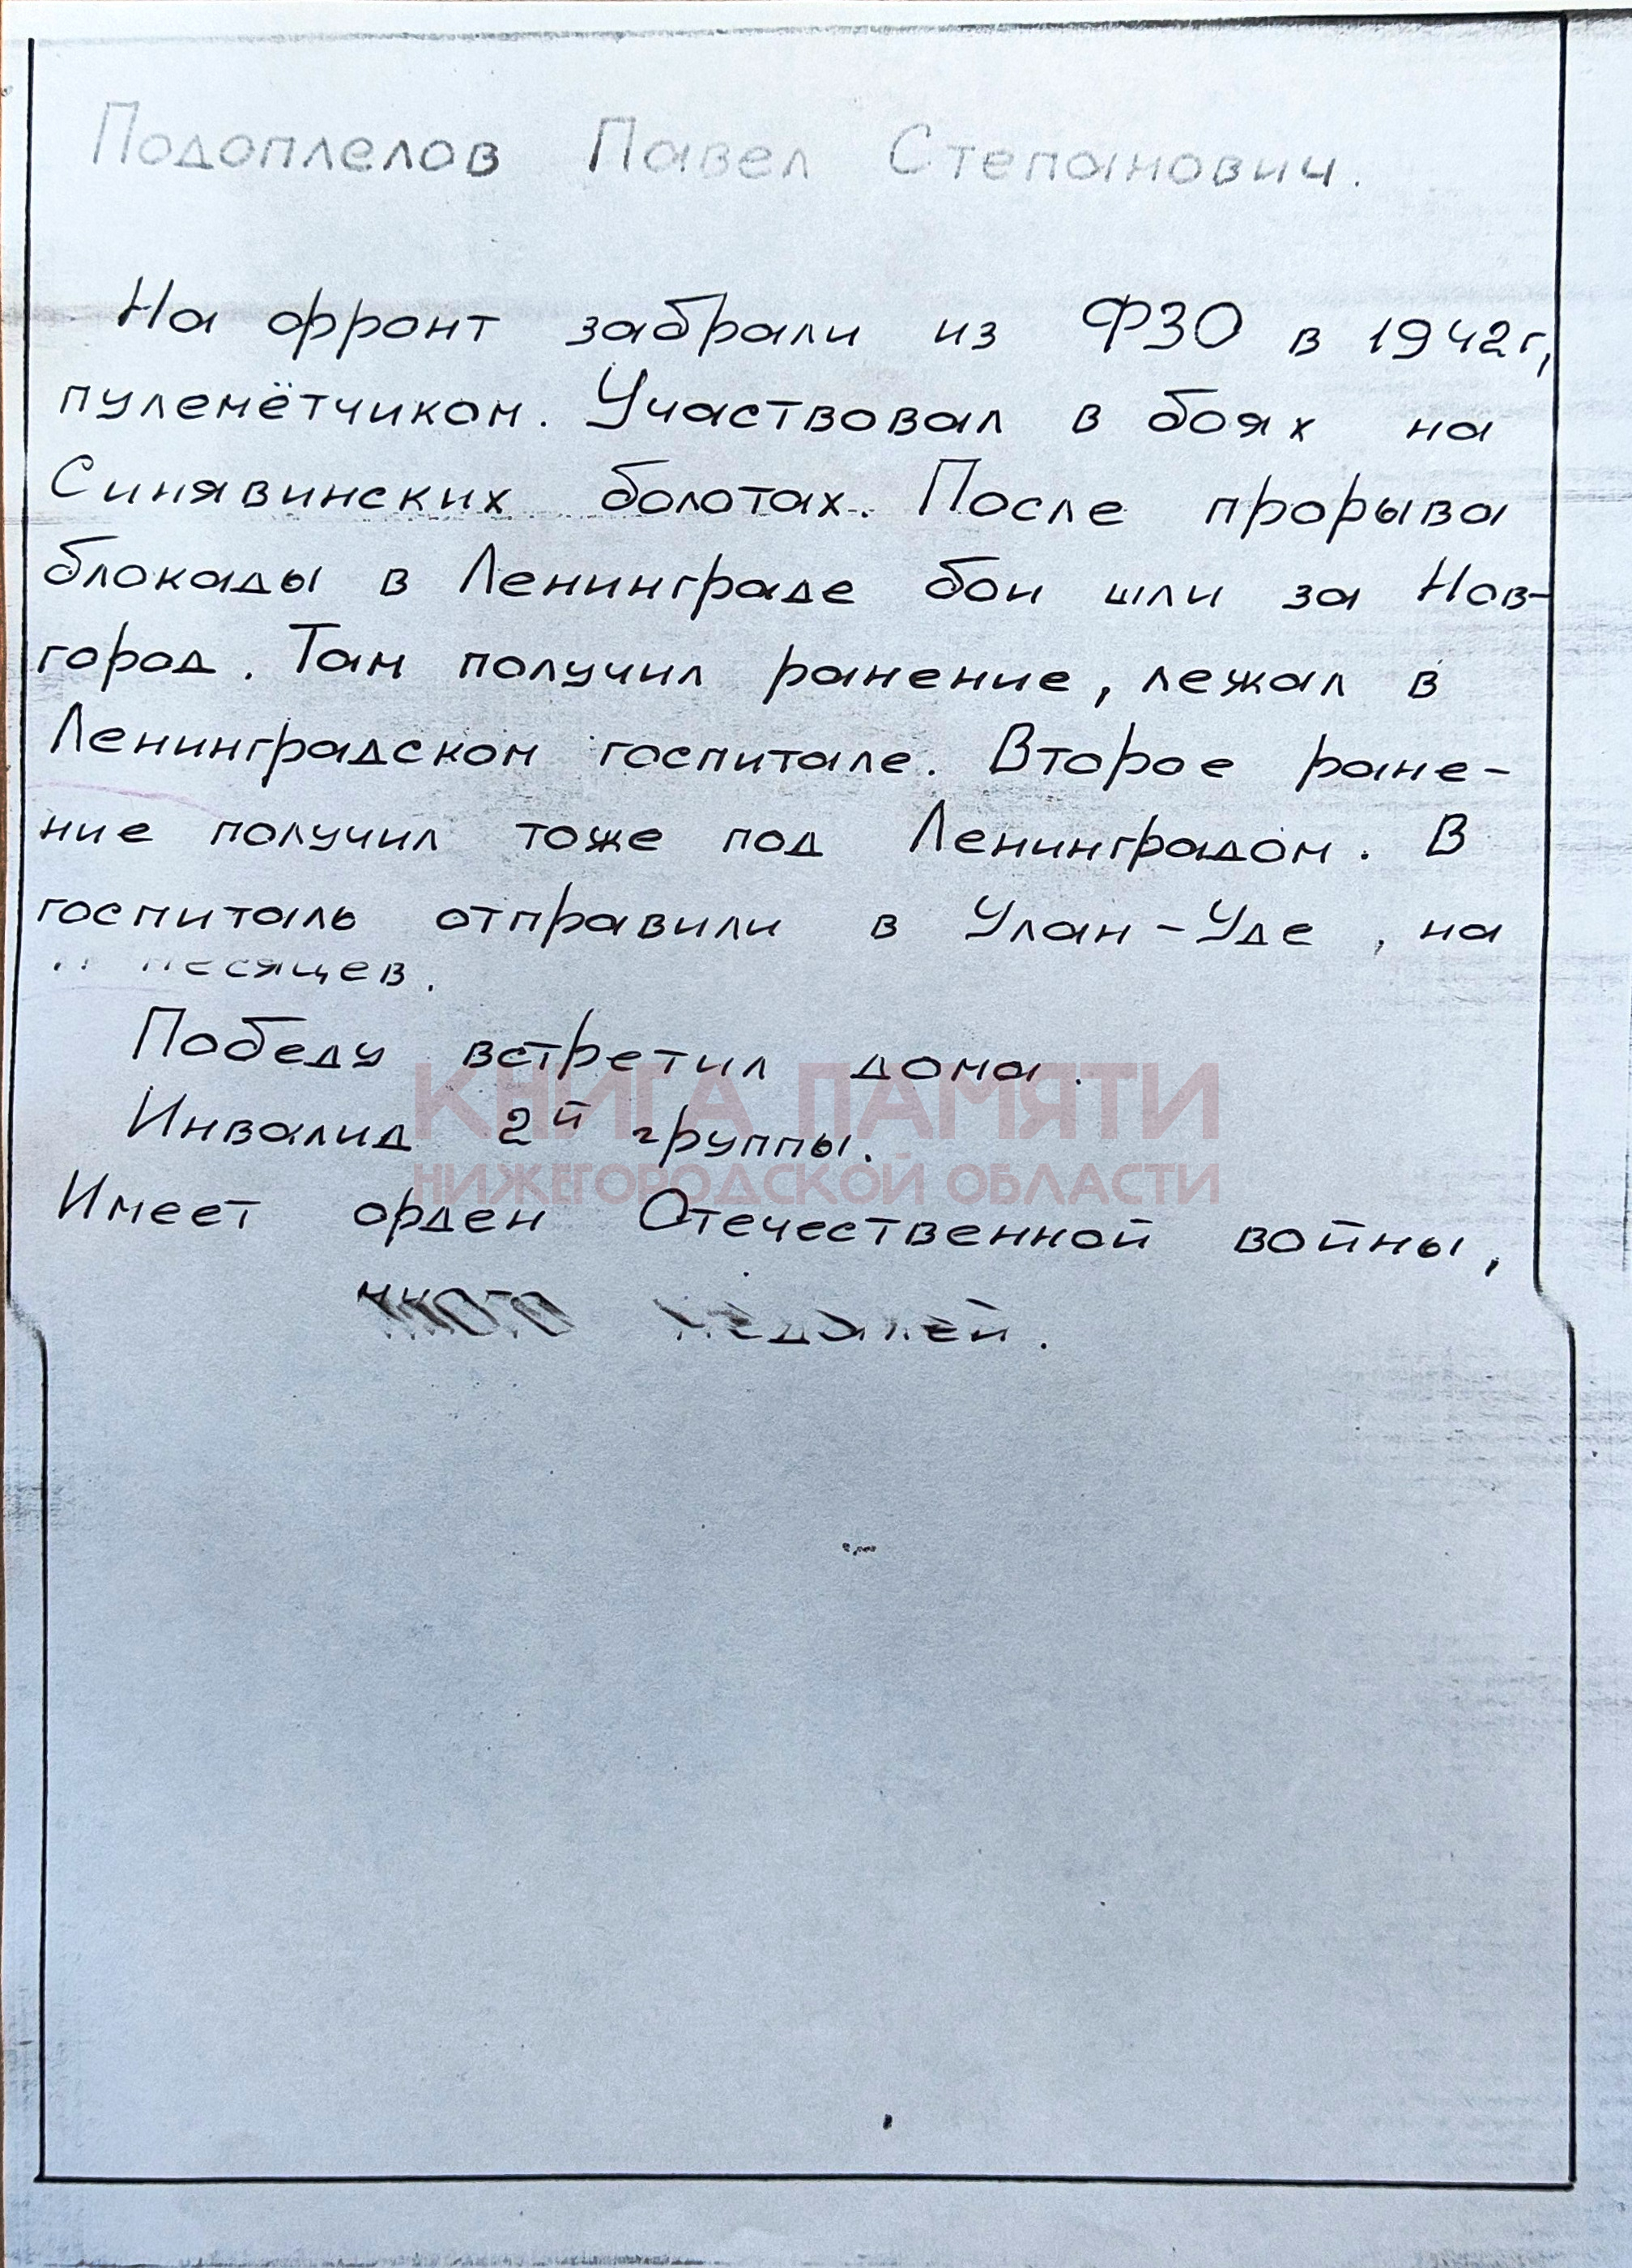 Подоплелов Павел Степанович.
На фронт забрали из ФЗО в 1942г,
пулемётчиком. Участвовал в боях на
Синявинских болотах. После прорыва
блокады в Ленинграде бои шли за Нов-
город. Там получил ранение, лежал в
Ленинградском госпитале. Второе ране-
ние получил тоже под Ленинградом. В
госпиталь отправили в Улан-Уде, на
месяцев.
Победу встретил дома.
КНИГА ПАМЯТИ
Инвалид 2й группы.
НИЖЕГОРОДСКОЙ ОБЛАСТИ
Имеет орден Отечественной войны,
много медалей.